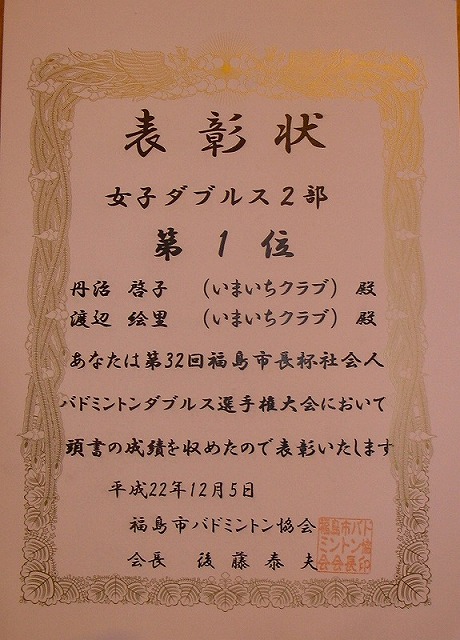 表彰状
女子ダブルス2部
第1位
丹治 啓子 (いまいちクラブ) 殿
渡辺 絵里 (いまいちクラブ) 殿
あなたは第32回福島市長杯社会人
バドミントンダブルス選手権大会において
頭書の成績を収めたので表彰いたします
平成22年12月5日
福島市バドミントン協会
会長 後藤泰夫
福島市バド
ミントン協
会会長印